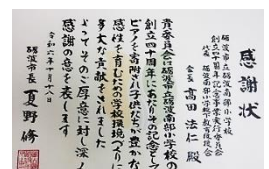 感謝状
砺波市立砺波南部小学校
創立四十周年記念事業実行委員会
代表 砺波南部小学校下教育後援会
会長 高田法仁殿
貴委員会は砺波市立砺波南部小学校の
創立四十周年にあたりその記念として
ピアノを寄附され子供たちが豊かな
感性を育むための学校環境づくりに
多大な貢献をされました
よってそのご厚意に対し深く
感謝の意を表します
令和六年十月十八日
砺波市長 夏野修